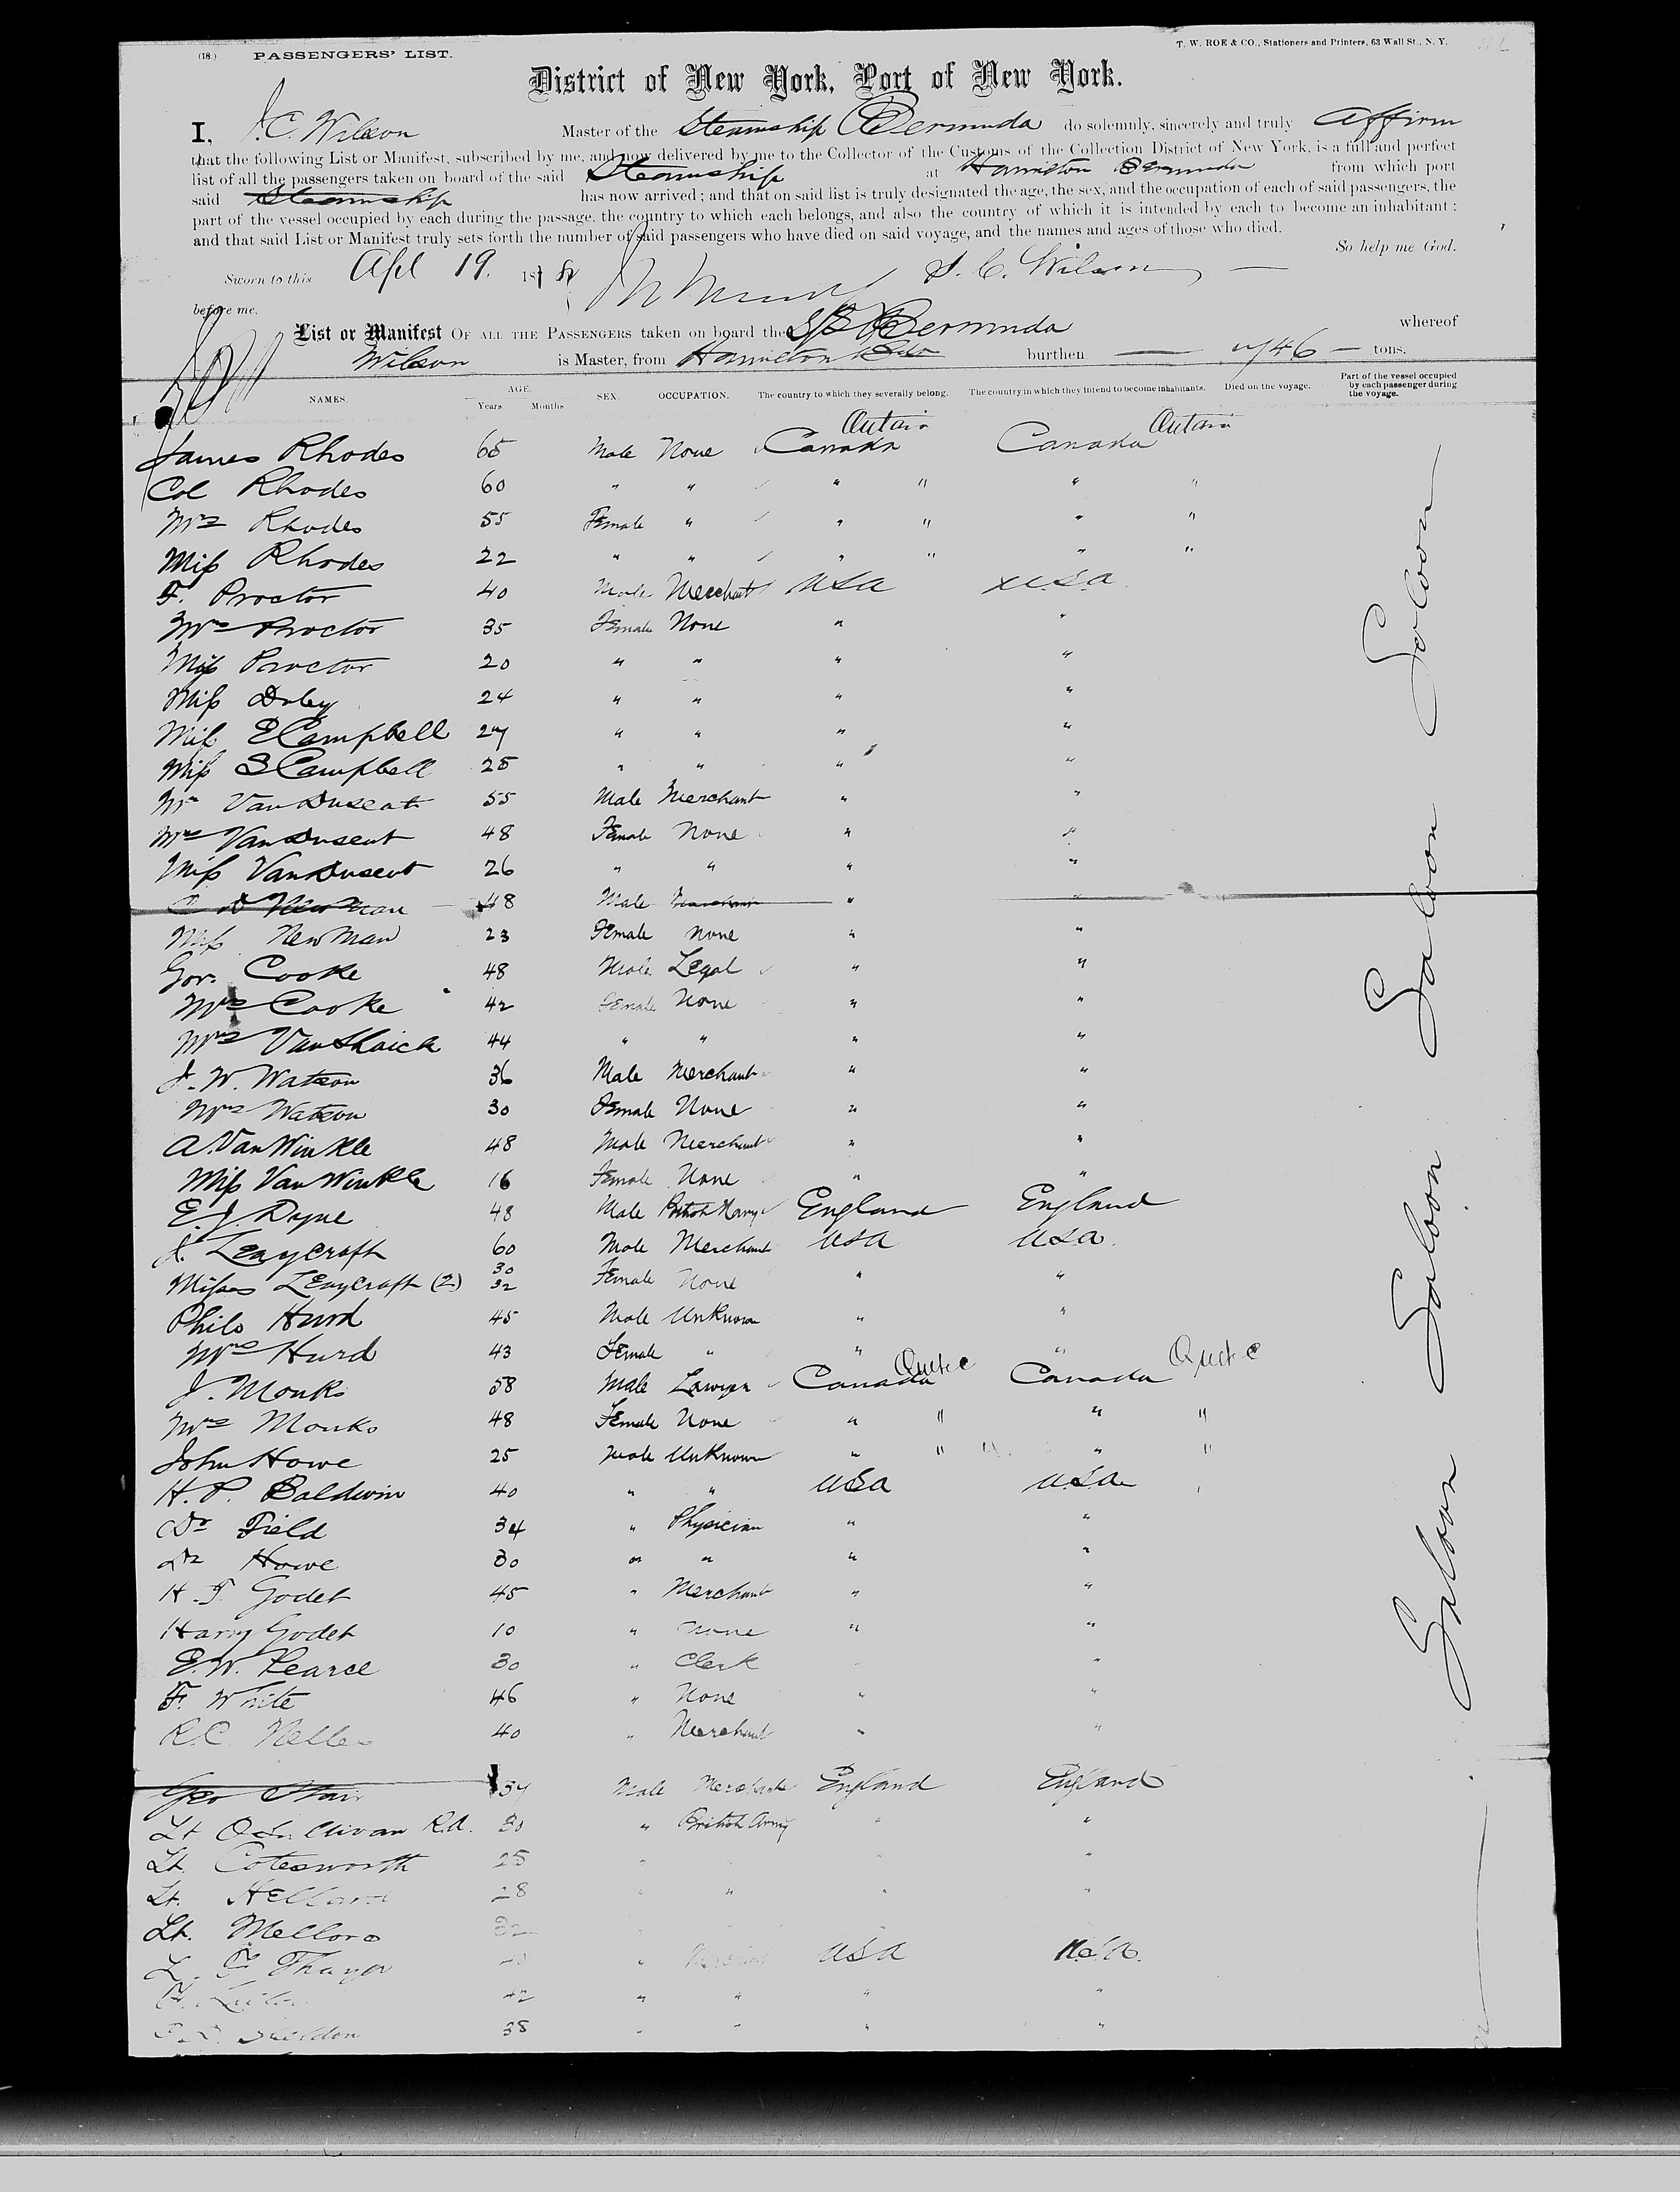 (18.) PASSENGERS' LIST. T. W. ROE & CO., Stationers and Printers, 63 Wall St., N. Y.
District of New York, Port of New York.
I, J. C. Wilson Master of the Steamship Bermuda do solemnly, sincerely and truly affirm
that the following List or Manifest, subscribed by me, and now delivered by me to the Collector of the Customs of the Collection District of New York, is a full and perfect
list of all the passengers taken on board of the said Steamship at Hamilton Bermuda from which port
said Steamship has now arrived; and that on said list is truly designated the age, the sex, and the occupation of each of said passengers, the
part of the vessel occupied by each during the passage, the country to which each belongs, and also the country of which it is intended by each to become an inhabitant;
and that said List or Manifest truly sets forth the number of said passengers who have died on said voyage, and the names and ages of those who died.
So help me God.
Sworn to this Apl 19. 18 J. C. Wilson
before me.
List or Manifest OF ALL THE PASSENGERS taken on board the S/S Bermuda whereof
Wilson is Master, from Hamilton Bda burthen 746 tons.
NAMES. AGE. Years Months SEX. OCCUPATION. The country to which they severally belong. The country in which they intend to become inhabitants. Died on the voyage. Part of the vessel occupied by each passenger during the voyage.
Ontario Ontario
James Rhodes 65 Male None Canada Canada
Col Rhodes 60 " " " " " "
Mrs Rhodes 55 Female " " " " "
Miss Rhodes 22 " " " " " "
F. Proctor 40 Male Merchant USA U.S.A.
Mrs Proctor 35 Female None " "
Miss Proctor 20 " " " "
Miss Doley 24 " " " "
Miss E Campbell 27 " " " "
Miss S Campbell 25 " " " "
Mr Van Dusent 55 Male Merchant " "
Mrs Van Dusent 48 Female None " "
Miss Van Dusent 26 " " " "
C D Newman 48 Male Merchant " "
Miss Newman 23 Female None " "
Gov. Cooke 48 Male Legal " "
Mrs Cooke 42 Female None " "
Mrs Van Shaick 44 " " " "
J. W. Watson 36 Male Merchant " "
Mrs Watson 30 Female None " "
A. Van Winkle 48 Male Merchant " "
Miss Van Winkle 16 Female None " "
E. J. Dyne 48 Male British Navy England England
J. Leaycraft 60 Male Merchant USA USA
Misses Leaycraft (2) 30 32 Female None " "
Philo Hurd 45 Male Unknown " "
Mrs Hurd 43 Female " " "
J. Monks 58 Male Lawyer Canada Canada
Mrs Monks 48 Female None " " " "
John Howe 25 Male Unknown " " " "
H. P. Baldwin 40 " " USA USA
Dr Field 34 " Physician " "
Dr Howe 30 " " " "
H. T. Godet 45 " Merchant " "
Harry Godet 10 " None " "
E. W. Pearce 30 " Clerk "
F. White 46 " None " "
R. C. Nelles 40 " Merchant " "
Geo Stair 34 Male Merchant England England
Lt. O Sullivan R.A. 30 " British Army " "
Lt. Cotesworth 25 " "
Lt. Hellard 28 " " " "
Lt. Mellors 32
L. F. Thayer " USA USA
42 " " " "
Sheldon 38 " " " "
Saloon Saloon Saloon Saloon